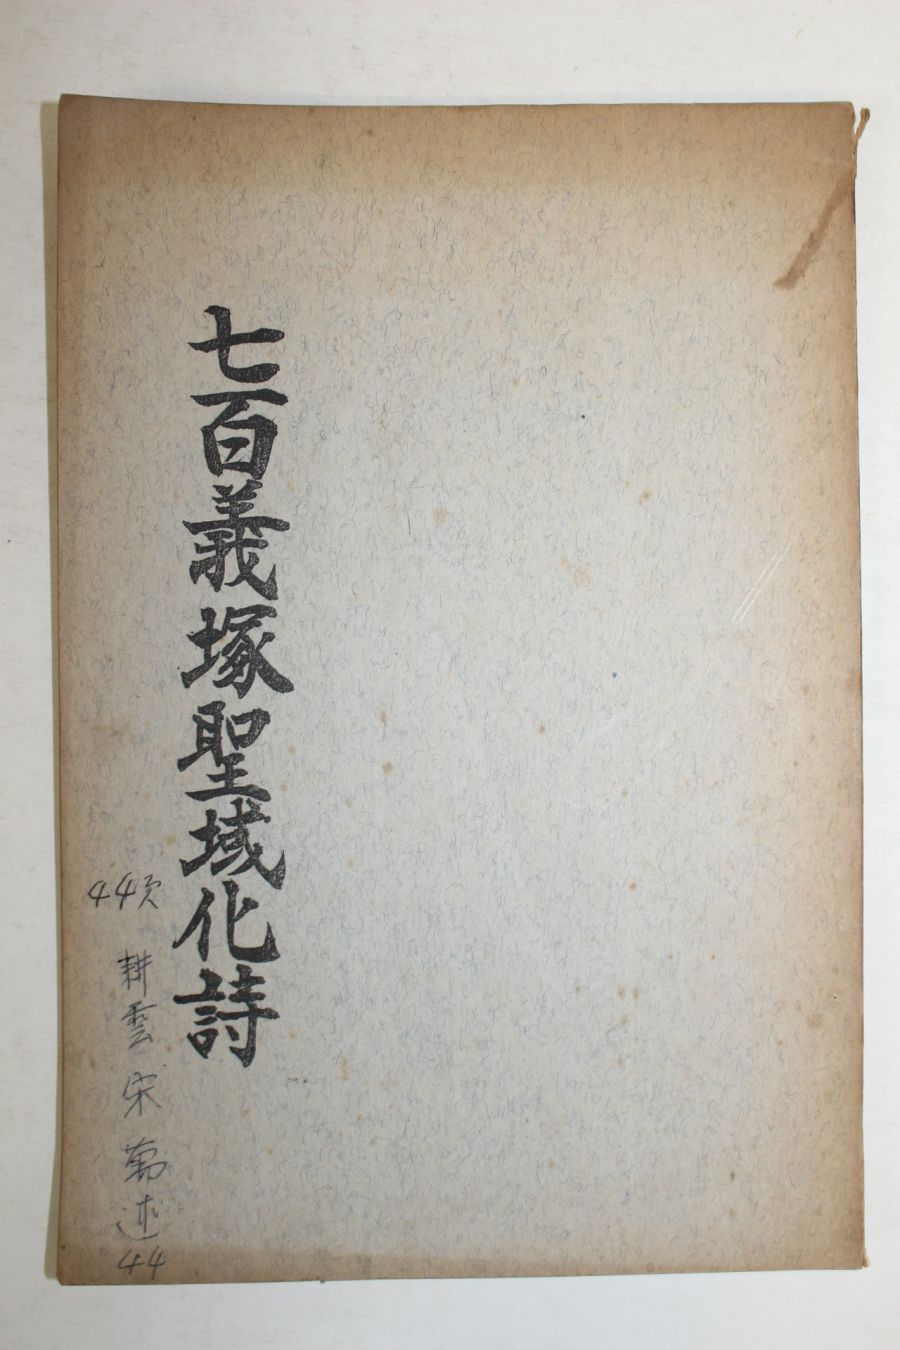 七百義塚聖域化詩
44頁
耕雲 宋萬述
44